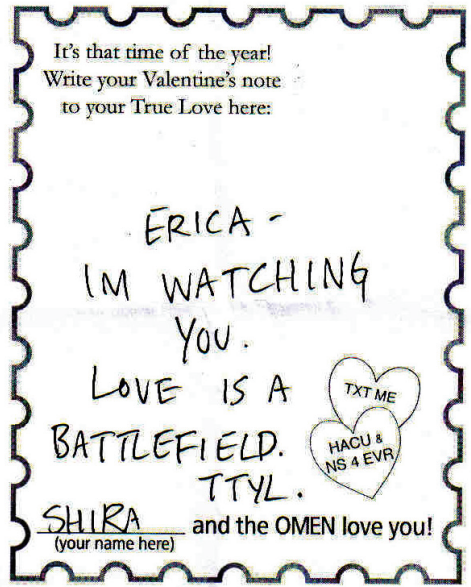 It's that time of the year!
Write your Valentine's note
to your True Love here:
ERICA -
IM WATCHING
YOU.
LOVE IS A
BATTLEFIELD.
TTYL.
TXT ME
HACU &
NS 4 EVR
SHIRA and the OMEN love you!
(your name here)